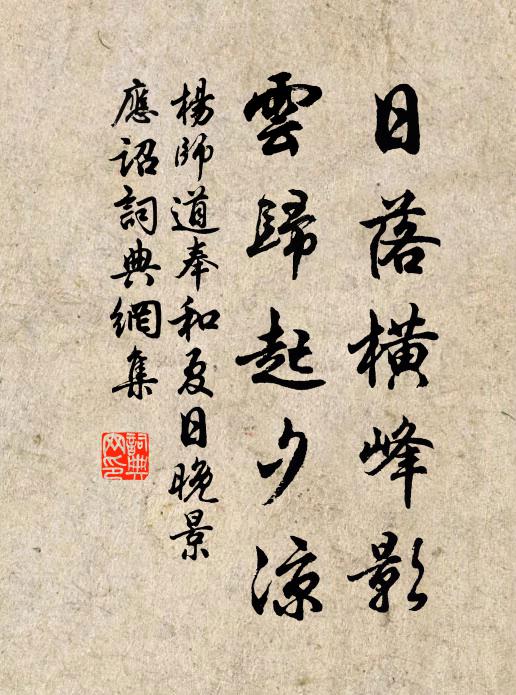 日落橫峰影
雲歸起夕涼
楊師道奉和夏日晚景
應詔詞典網集
詞典
网印